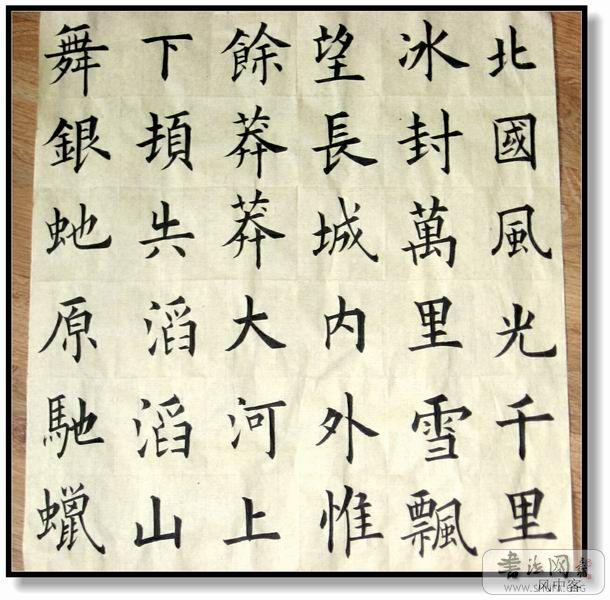 北國風光千里
冰封萬里雪飄
望長城内外惟
餘莽莽大河上
下頓失滔滔山
舞銀虵原馳蠟
书法网
风中客